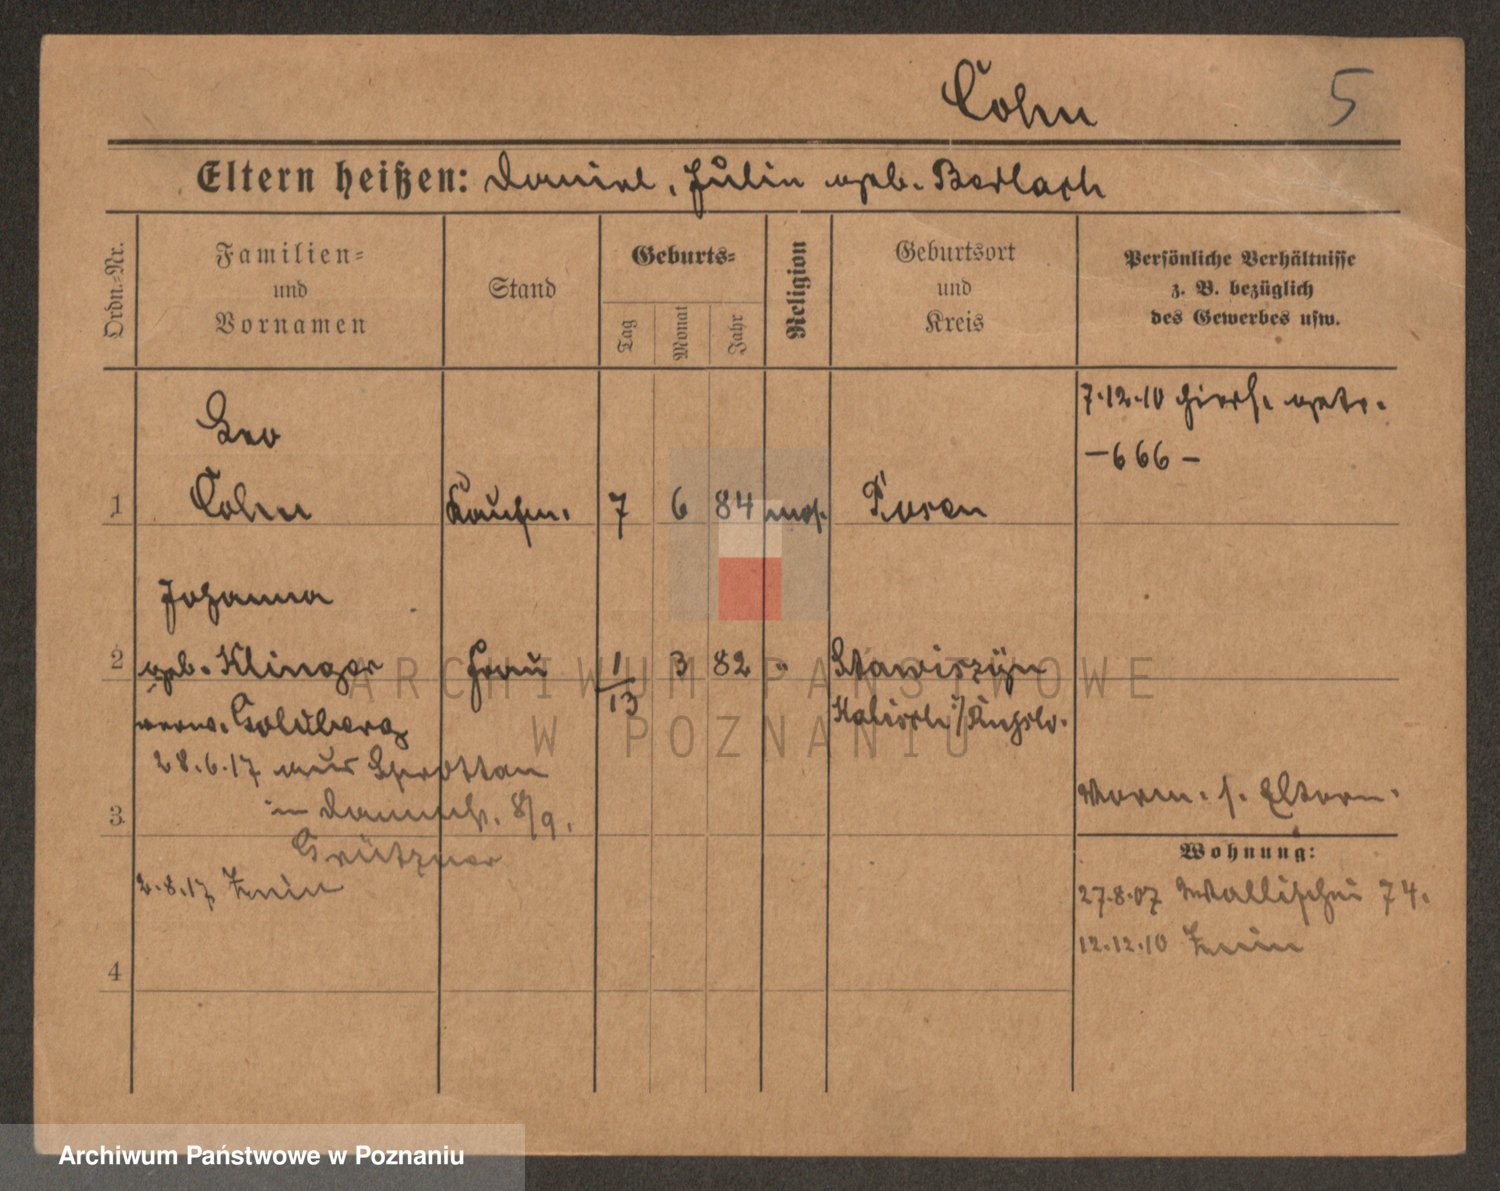 Cohn
5
Eltern heißen: Daniel, Julie geb. Badlach
Ordn.-Nr.
Familien-
und
Vornamen
Stand
Geburts-
Tag
Monat
Jahr
Religion
Geburtsort
und
Kreis
Persönliche Verhältnisse
z. B. bezüglich
des Gewerbes usw.
7.12.10 hiers. getr.
— 666 —
Leo
1 Cohn Kaufm. 7 6 84 mos. Posen
Johanna
2 geb. Klinger Frau 1/13 3 82 " Stawiszyn
verw. Goldberg
Kalisch
28.6.17 aus Sprottau
in 8/9.
3
Grützner
Vorm. s. Eltern.
Wohnung:
2.8.17 Znin
27.8.07 Wallischei 74.
12.12.10 Znin
4
ARCHIWUM PAŃSTWOWE
W POZNANIU
Archiwum Państwowe w Poznaniu